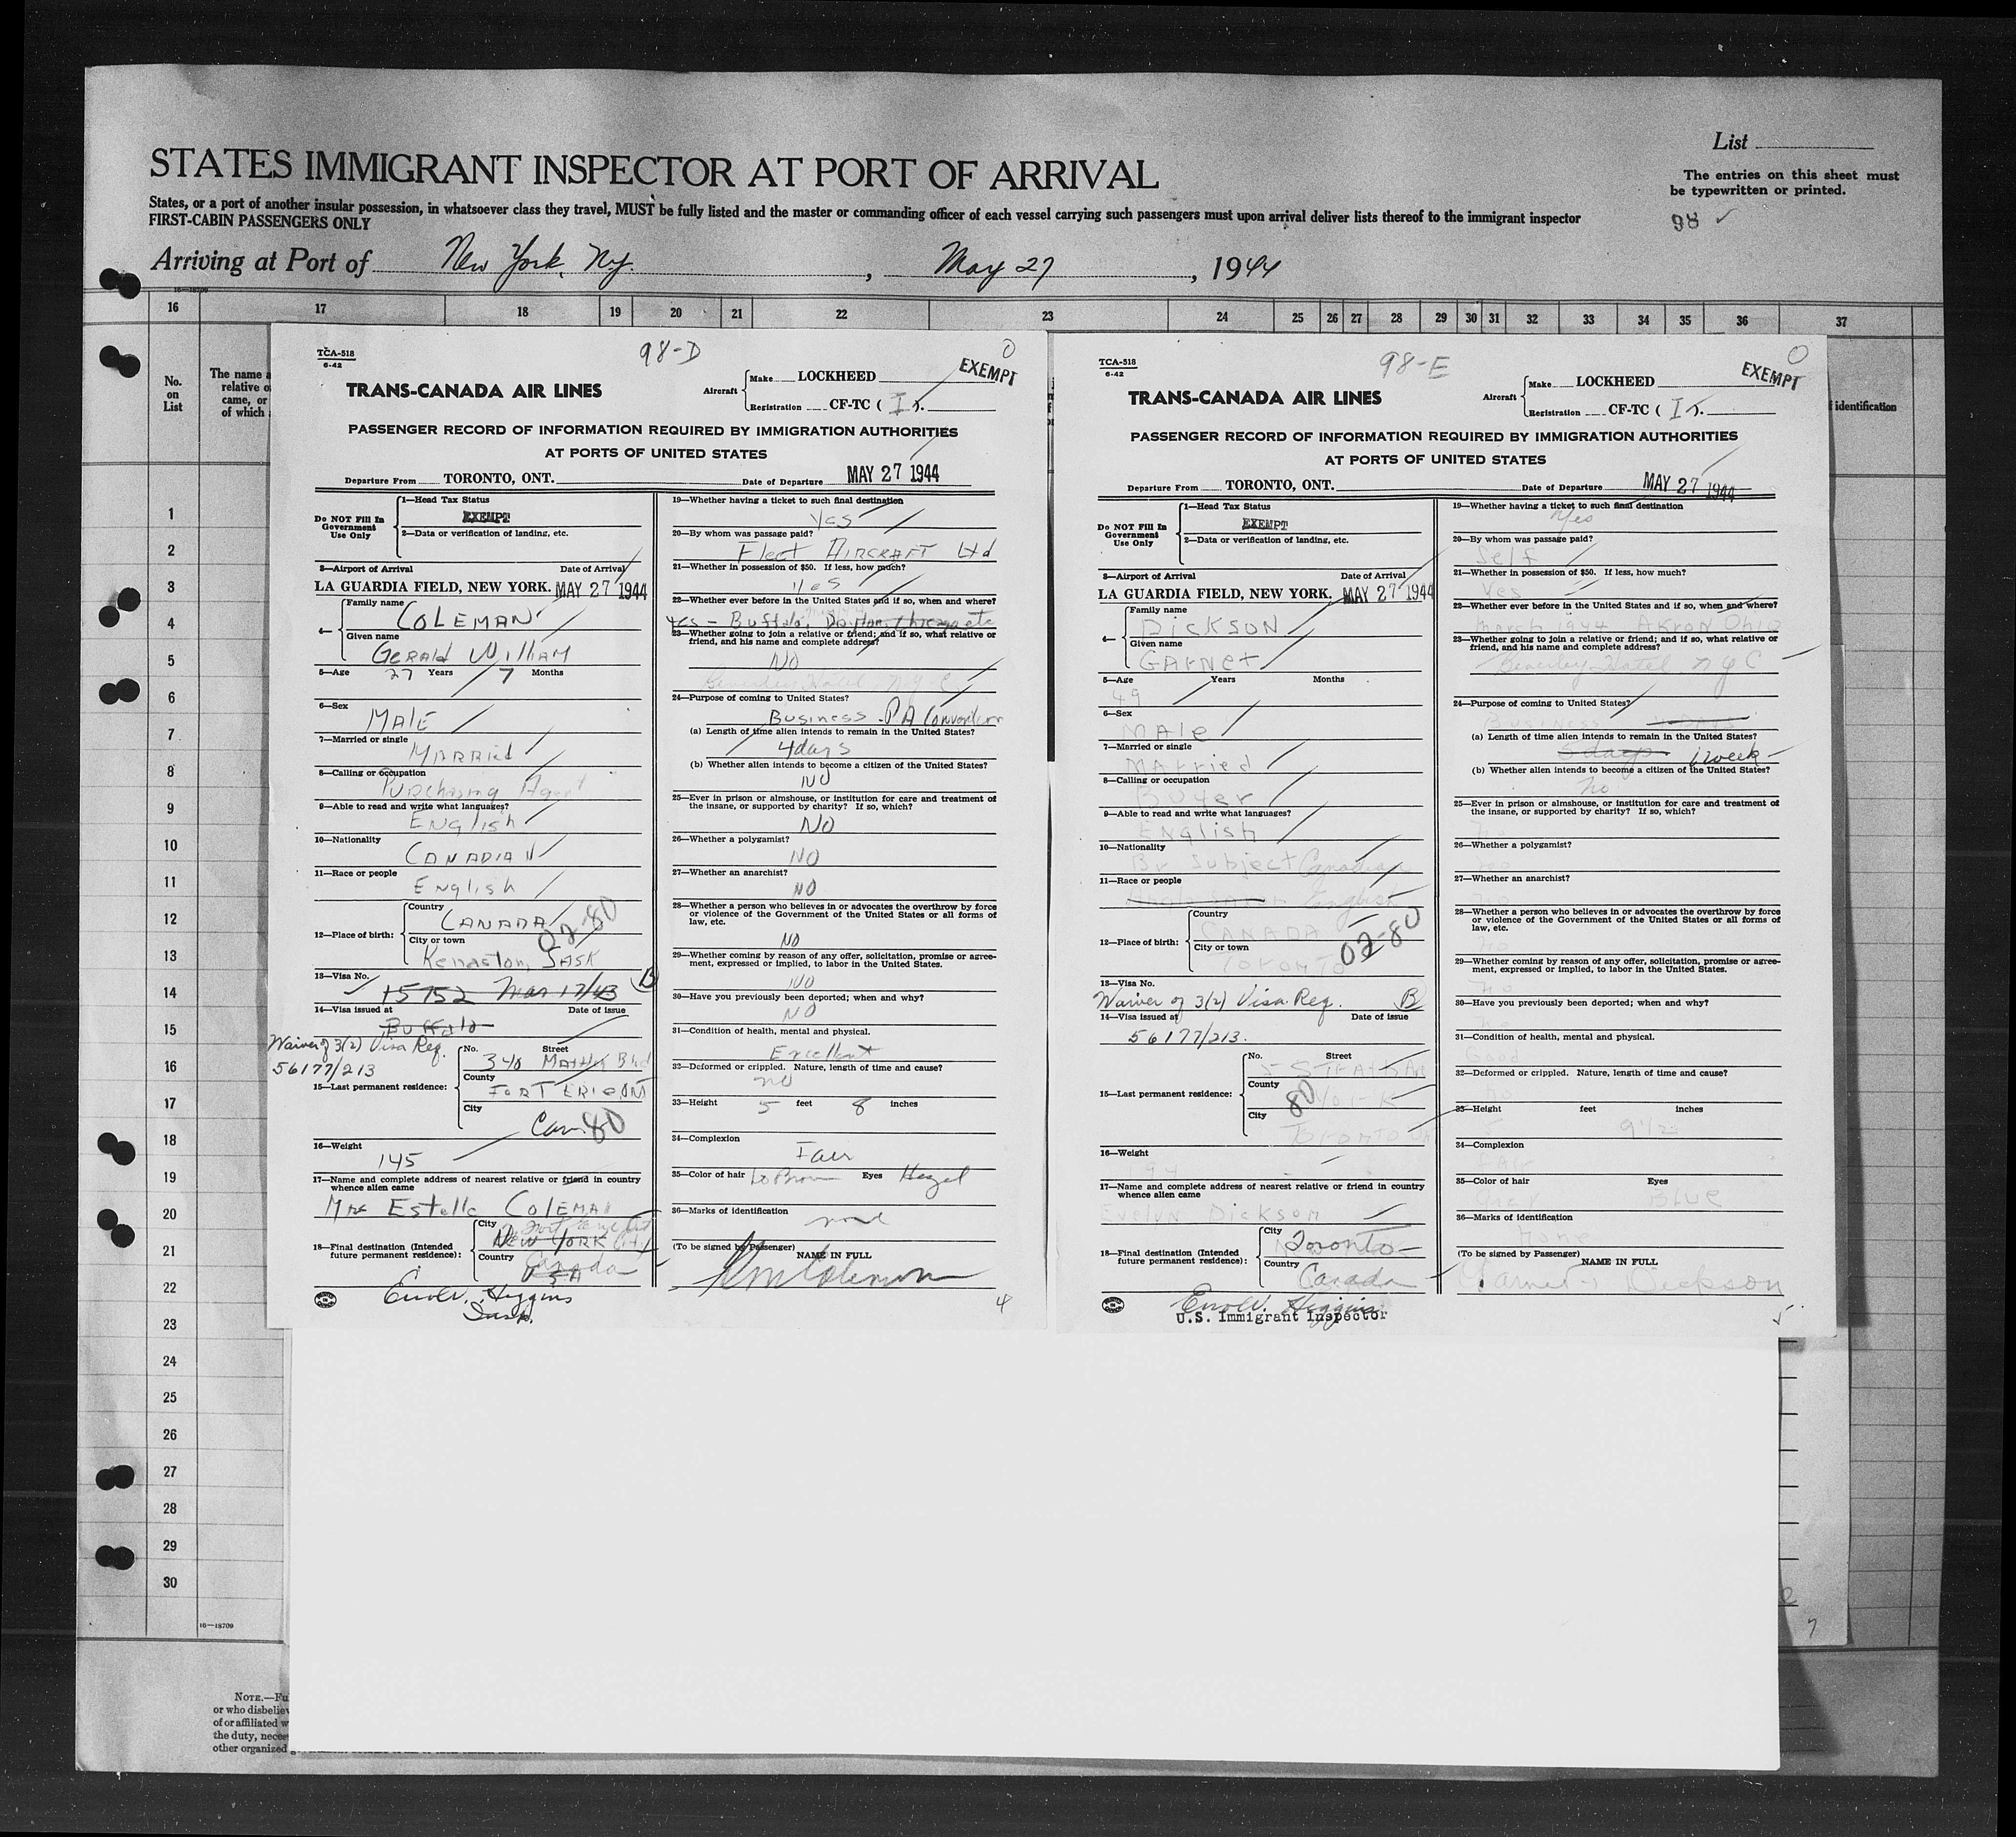 List
STATES IMMIGRANT INSPECTOR AT PORT OF ARRIVAL
The entries on this sheet must
be typewritten or printed.
States, or a port of another insular possession, in whatsoever class they travel, MUST be fully listed and the master or commanding officer of each vessel carrying such passengers must upon arrival deliver lists thereof to the immigrant inspector
FIRST-CABIN PASSENGERS ONLY
98 ✓
Arriving at Port of New York, N.Y. , May 27 , 1944
16 17 18 19 20 21 22 23 24 25 26 27 28 29 30 31 32 33 34 35 36 37
No.
on
List
The name a
relative o
came, or
of which
identification
1
2
3
4
5
6
7
8
9
10
11
12
13
14
15
16
17
18
19
20
21
22
23
24
25
26
27
28
29
30
16—18709
NOTE.—Fu
or who disbeliev
of or affiliated w
the duty, neces
other organized
7
TCA-518
6-42
98-D
0
EXEMPT
TRANS-CANADA AIR LINES
Aircraft
Make LOCKHEED
Registration CF-TC ( I ).
PASSENGER RECORD OF INFORMATION REQUIRED BY IMMIGRATION AUTHORITIES
AT PORTS OF UNITED STATES
Departure From TORONTO, ONT. Date of Departure MAY 27 1944
Do NOT Fill In
Government
Use Only
1—Head Tax Status
EXEMPT
2—Data or verification of landing, etc.
3—Airport of Arrival Date of Arrival
LA GUARDIA FIELD, NEW YORK. MAY 27 1944
4— Family name
COLEMAN
Given name
GERALD WILLIAM
5—Age 27 Years 7 Months
6—Sex
MALE
7—Married or single
MARRIED
8—Calling or occupation
Purchasing Agent
9—Able to read and write what languages?
ENGLISH
10—Nationality
CANADIAN
11—Race or people
ENGLISH
12—Place of birth:
Country
CANADA
02-80
City or town
Kenaston, SASK
13—Visa No.
15752 Mar 17/43 B
14—Visa issued at Date of issue
Buffalo
Waiver of 3(2) Visa Req.
56177/213
15—Last permanent residence:
No. Street
340
County
FORT ERIE, ONT
City
Can. 80
16—Weight
145
17—Name and complete address of nearest relative or friend in country
whence alien came
Mrs Estella COLEMAN
18—Final destination (Intended
future permanent residence):
City
NEW YORK
Country
USA
Canada
Errol V. Higgins
Insp.
19—Whether having a ticket to such final destination
Yes
20—By whom was passage paid?
Fleet AIRCRAFT Ltd
21—Whether in possession of $50. If less, how much?
Yes
22—Whether ever before in the United States and if so, when and where?
Yes - Buffalo, Dayton, Chicago etc
23—Whether going to join a relative or friend; and if so, what relative or
friend, and his name and complete address?
NO
Beverley Hotel N Y C
24—Purpose of coming to United States?
Business - P A Convention
(a) Length of time alien intends to remain in the United States?
4 days
(b) Whether alien intends to become a citizen of the United States?
NO
25—Ever in prison or almshouse, or institution for care and treatment of
the insane, or supported by charity? If so, which?
NO
26—Whether a polygamist?
NO
27—Whether an anarchist?
NO
28—Whether a person who believes in or advocates the overthrow by force
or violence of the Government of the United States or all forms of
law, etc.
NO
29—Whether coming by reason of any offer, solicitation, promise or agree-
ment, expressed or implied, to labor in the United States.
NO
30—Have you previously been deported; when and why?
NO
31—Condition of health, mental and physical.
Excellent
32—Deformed or crippled. Nature, length of time and cause?
no
33—Height 5 feet 8 inches
34—Complexion
Fair
35—Color of hair Eyes Hazel
36—Marks of identification
none
(To be signed by Passenger) NAME IN FULL
4
TCA-518
6-42
98-E
0
EXEMPT
TRANS-CANADA AIR LINES
Aircraft
Make LOCKHEED
Registration CF-TC ( I ).
PASSENGER RECORD OF INFORMATION REQUIRED BY IMMIGRATION AUTHORITIES
AT PORTS OF UNITED STATES
Departure From TORONTO, ONT. Date of Departure MAY 27 1944
Do NOT Fill In
Government
Use Only
1—Head Tax Status
EXEMPT
2—Data or verification of landing, etc.
3—Airport of Arrival Date of Arrival
LA GUARDIA FIELD, NEW YORK. MAY 27 1944
4— Family name
DICKSON
Given name
GARNET
5—Age Years Months
49
6—Sex
Male
7—Married or single
Married
8—Calling or occupation
Buyer
9—Able to read and write what languages?
English
10—Nationality
Br Subject Canadian
11—Race or people
English
12—Place of birth:
Country
CANADA
02-80
City or town
TORONTO
13—Visa No.
Waiver of 3(2) Visa Req. B
14—Visa issued at Date of issue
56177/213.
15—Last permanent residence:
No. Street
County
80 York
City
Toronto
16—Weight
194
17—Name and complete address of nearest relative or friend in country
whence alien came
Evelyn Dickson
18—Final destination (Intended
future permanent residence):
City
Toronto
Country
Canada
Errol V. Higgins
U.S. Immigrant Inspector
19—Whether having a ticket to such final destination
Yes
20—By whom was passage paid?
Self
21—Whether in possession of $50. If less, how much?
Yes
22—Whether ever before in the United States and if so, when and where?
March 1944 Akron Ohio
23—Whether going to join a relative or friend; and if so, what relative or
friend, and his name and complete address?
Beverley Hotel N Y C
24—Purpose of coming to United States?
Business
(a) Length of time alien intends to remain in the United States?
3 days 1 week
(b) Whether alien intends to become a citizen of the United States?
no
25—Ever in prison or almshouse, or institution for care and treatment of
the insane, or supported by charity? If so, which?
no
26—Whether a polygamist?
no
27—Whether an anarchist?
no
28—Whether a person who believes in or advocates the overthrow by force
or violence of the Government of the United States or all forms of
law, etc.
no
29—Whether coming by reason of any offer, solicitation, promise or agree-
ment, expressed or implied, to labor in the United States.
no
30—Have you previously been deported; when and why?
no
31—Condition of health, mental and physical.
Good
32—Deformed or crippled. Nature, length of time and cause?
no
33—Height feet inches
5 9 1/2
34—Complexion
Fair
35—Color of hair Eyes
Gray BLUE
36—Marks of identification
None
(To be signed by Passenger) NAME IN FULL
Garnet Dickson
5